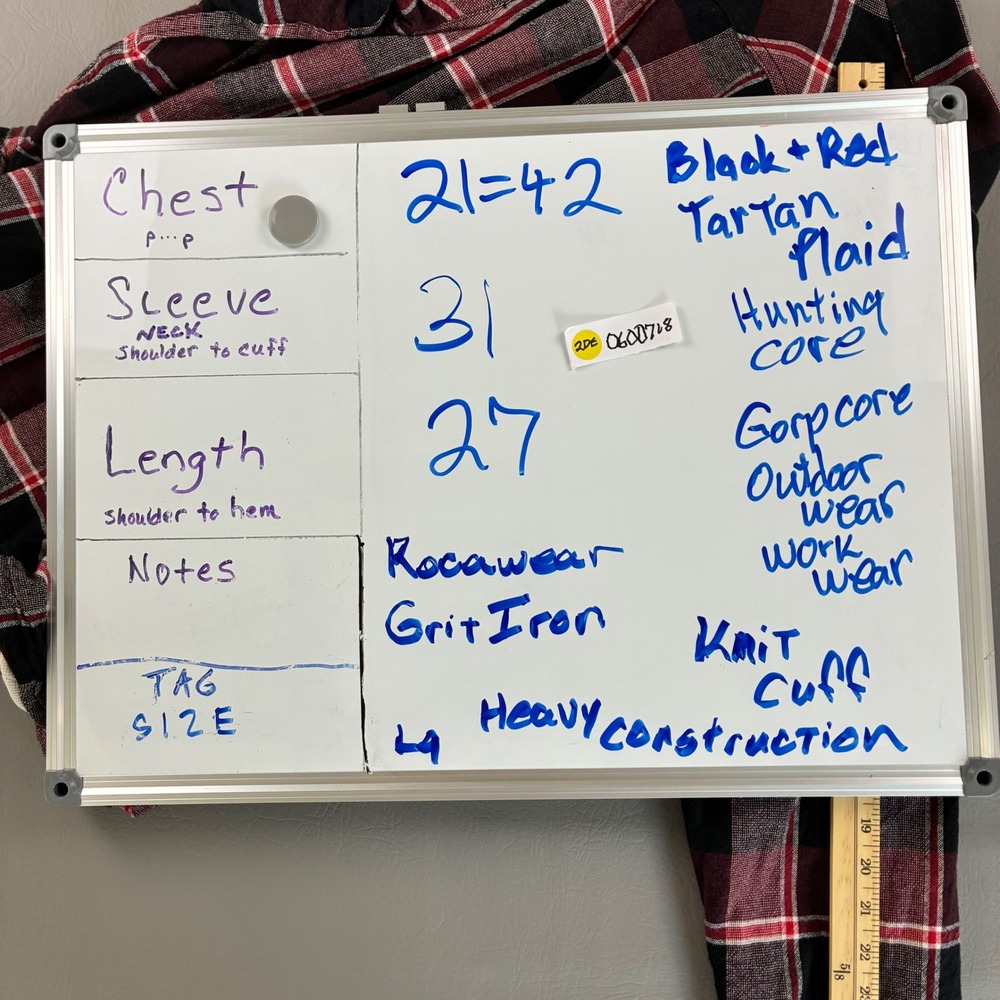 Chest
P...P
Sleeve
NECK
shoulder to cuff
Length
shoulder to hem
Notes
TAG
SIZE
21=42
31
27
Rocawear
Grit Iron
Lg
Heavy construction
Black + Red
Tartan
Plaid
Hunting
core
Gorpcore
Outdoor
wear
work
wear
Knit
Cuff
19
20
21
22
5/8